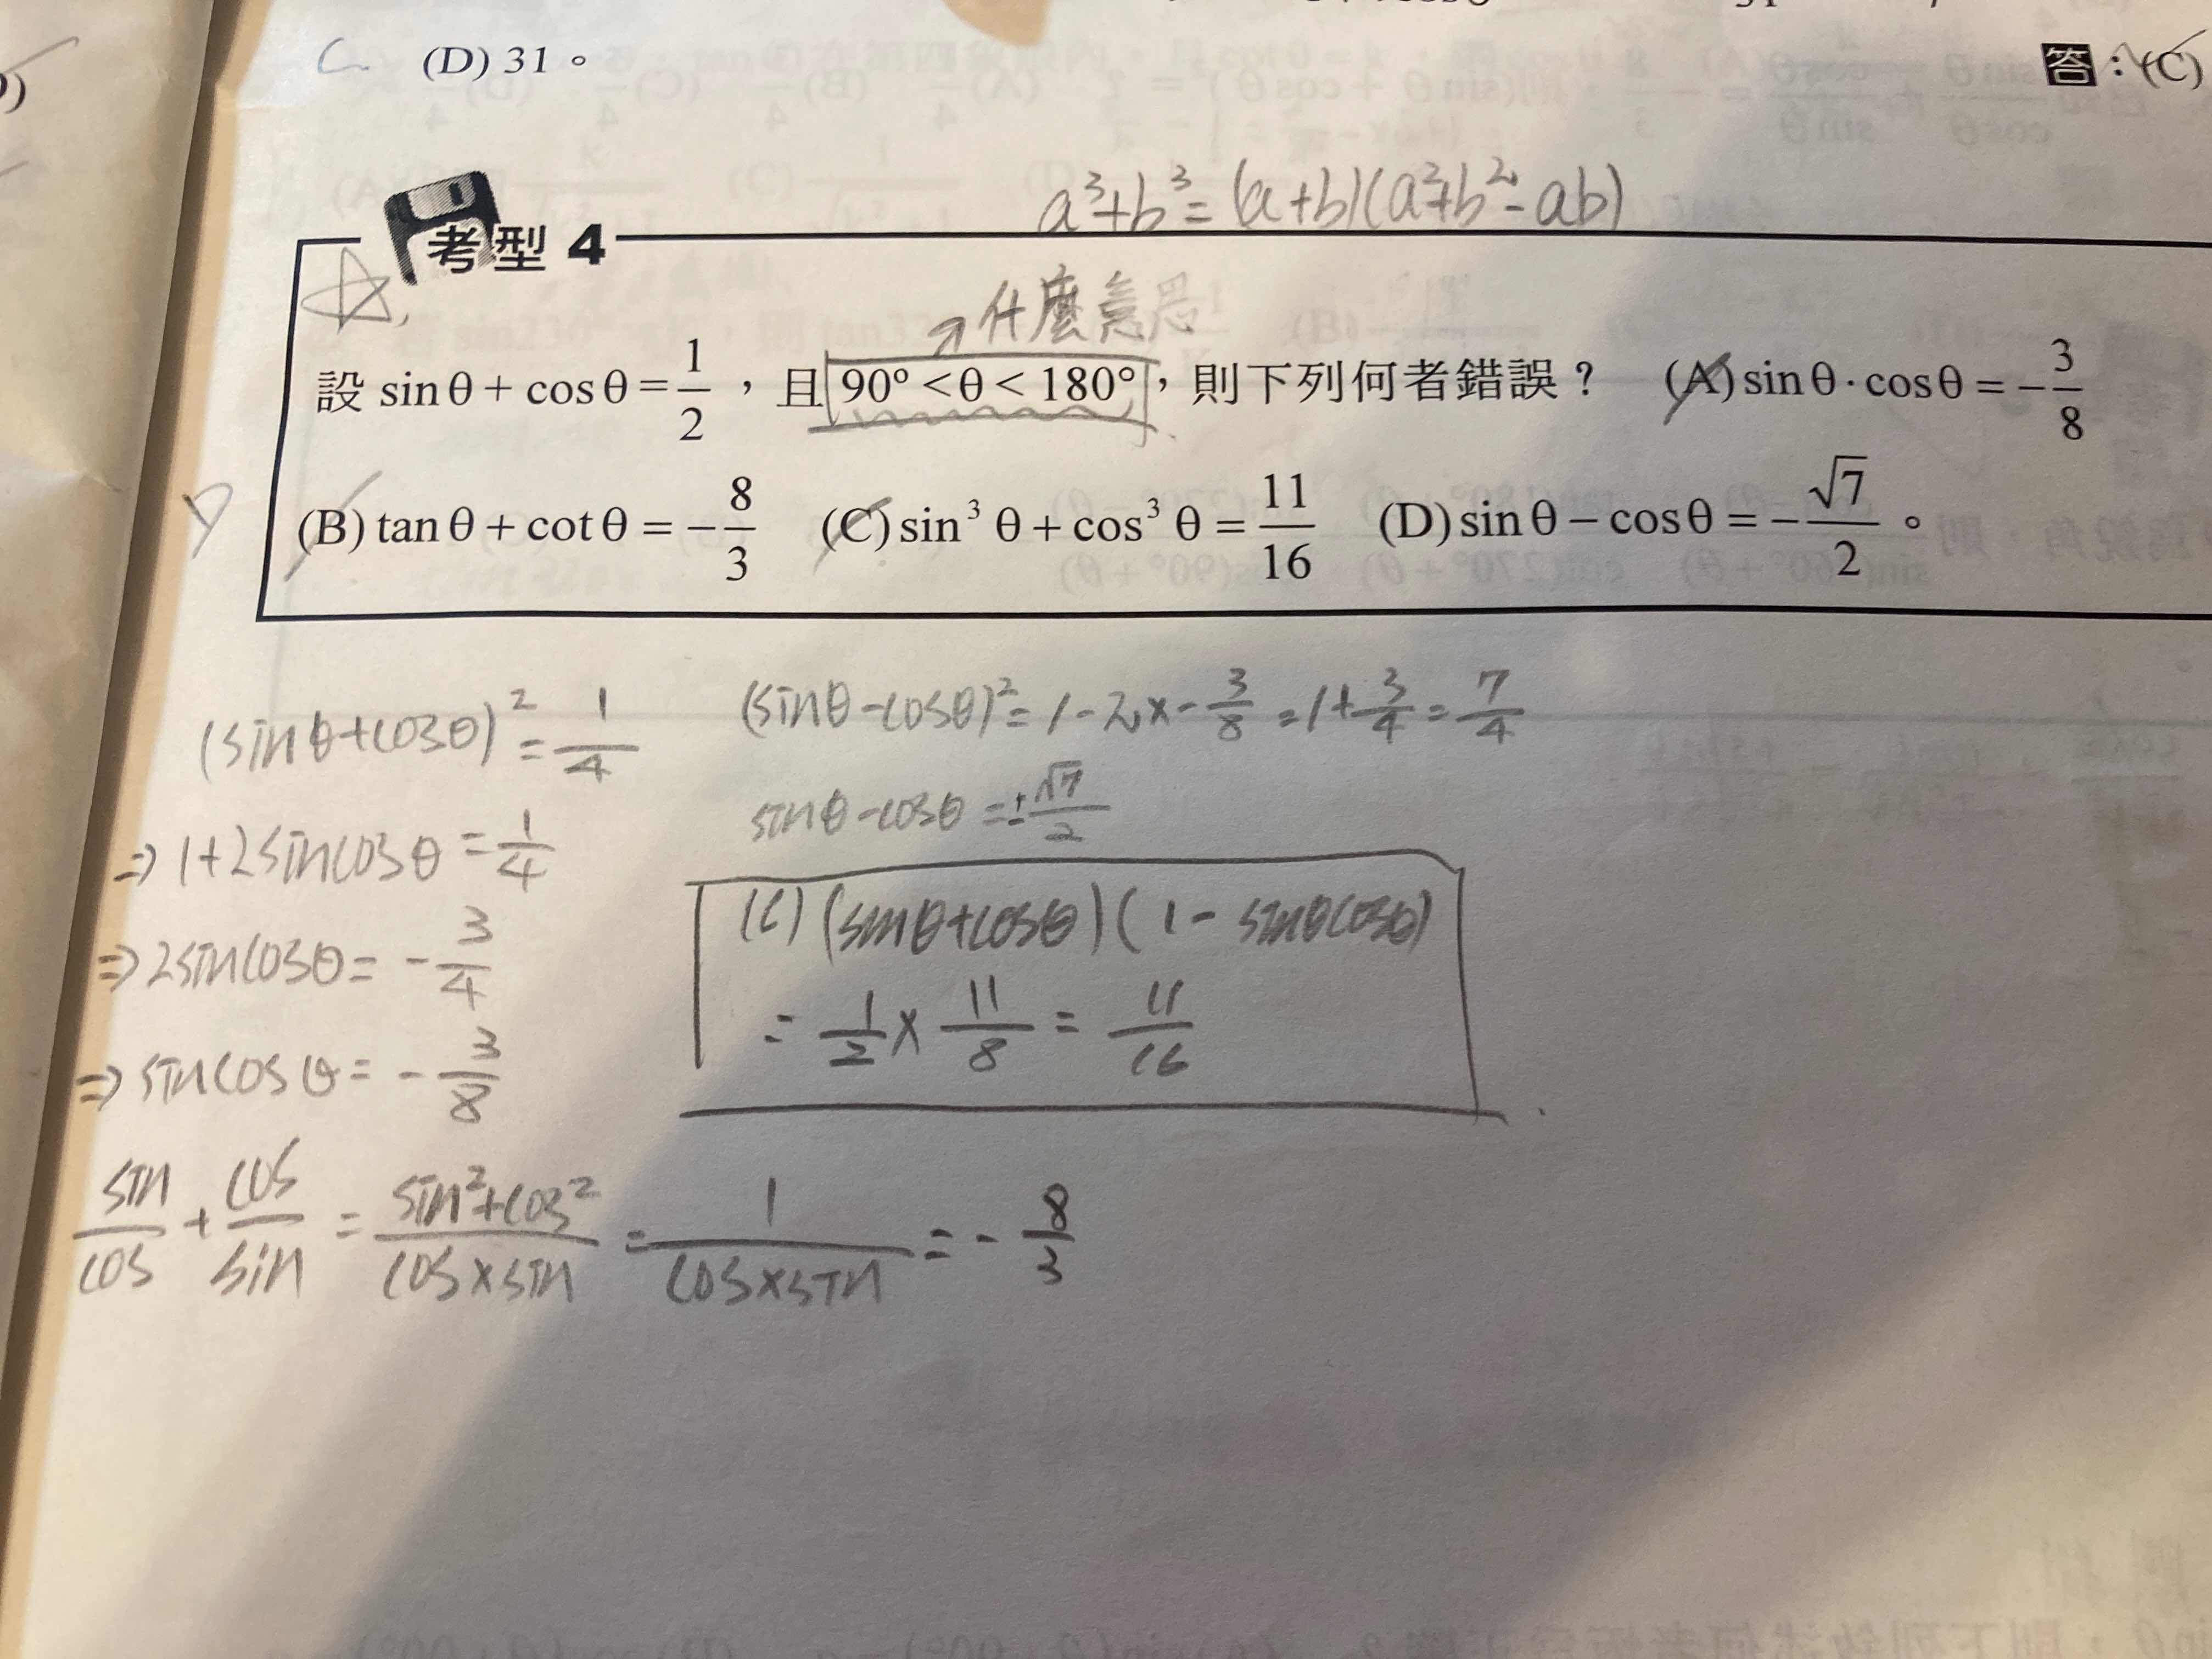 C. (D) 31。 答:(C)
a³+b³=(a+b)(a²+b²-ab)
考型 4
→什麼意思
設 sinθ + cosθ = 1/2，且 90° < θ < 180°，則下列何者錯誤？ (A) sinθ·cosθ = -3/8
D (B) tanθ + cotθ = -8/3 (C) sin³θ + cos³θ = 11/16 (D) sinθ - cosθ = -√7/2。
(sinθ+cosθ)² = 1/4
⇒ 1+2sincosθ = 1/4
⇒ 2sincosθ = -3/4
⇒ sincosθ = -3/8
(sinθ-cosθ)² = 1-2×-3/8 = 1+3/4 = 7/4
sinθ-cosθ = ±√7/2
(C) (sinθ+cosθ)(1-sinθcosθ)
= 1/2 × 11/8 = 11/16
sin/cos + cos/sin = sin²+cos²/cos×sin = 1/cos×sin = -8/3